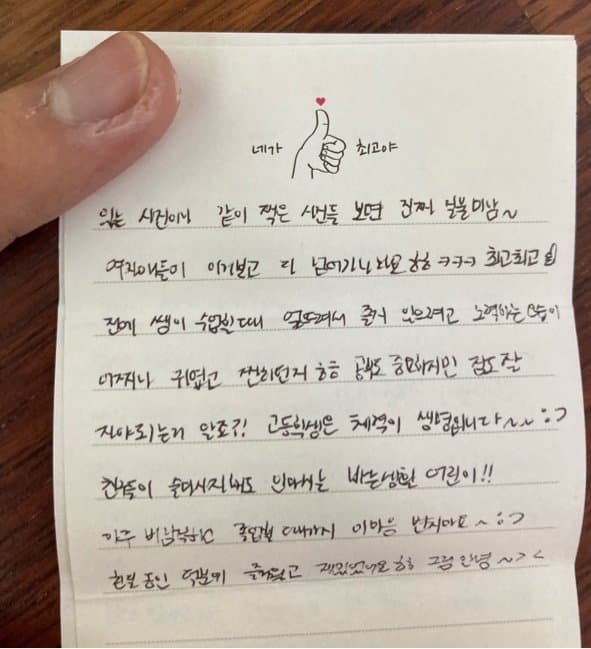 네가 최고야
있는 사진이나 같이 찍은 사진들 보면 진짜 훈남미남~
여자애들이 이거보고 다 넘어가나봐요 ㅎㅎ ㅋㅋㅋ 최고최고
전에 쌤이 수업할 때 엎드려서 졸지 않으려고 노력하는 모습이
어찌나 귀엽고 짠하던지 ㅎㅎ 공부도 중요하지만 잠도 잘
자야 되는거 알죠?! 고등학생은 체력이 생명입니다~~ :)
술마시자해도 안마시는 바른생활 어린이!!
아주 바람직해 졸업할 때까지 이마음 변치마요~ :)
한분 동안 덕분에 즐거웠고 재밌었어요 ㅎㅎ 그럼 안녕~ > <